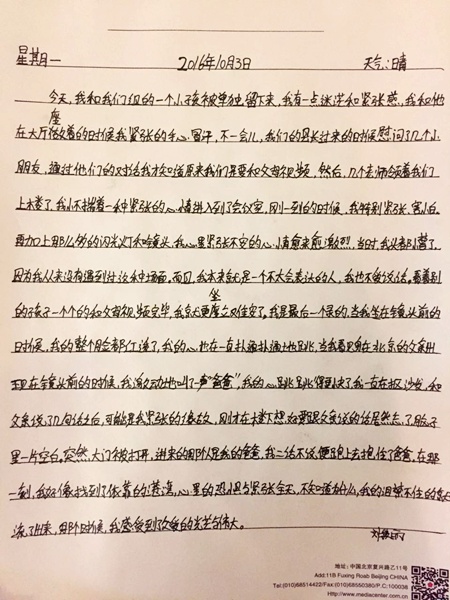 星期一 2016年10月3日 天气:晴
今天,我和我们组的一个小孩被单独留下来,我有一点迷茫和紧张感,我和他
座
在大厅做着的时候我紧张的手心冒汗,不一会儿,我们的县长过来的时候慰问了几个小
朋友,通过他们的对话我才知道原来我们是要和父母视频,然后,几个老师领着我们
上楼了,我怀揣着一种紧张的心情进入到了会议室,刚一到的时候,我特别紧张、害怕。
再加上那么多的闪光灯和镜头,我心里紧张不安的心情愈来愈激烈,当时我头都懵了,
因为我从来没有遇到过这种场面,而且,我本来就是一个不太会表达的人,我也不敢说话。看着别
坐
的孩子一个个的和父母视频完毕,我就更座立难安了。我是最后一个录的,当我坐在镜头前的
时候,我的整个脸都红透了,我的心也在一直扑通扑通地跳,当我看见身在北京的父亲出
现在镜头前的时候,我激动地叫了一声“爸爸”,我的心跳跳得更快了我一直在抠沙发,和
父亲说了几句话之后,可能是我紧张的缘故,刚才在楼下想好要跟父亲说的话居然忘了,脑子
里一片空白。突然,大门被打开,进来的那个人是我的爸爸,我二话不说便跑上去抱住了爸爸,在那
一刻,我好像找到了依靠的港湾,心里的恐惧与紧张全无,不知道为什么,我的泪禁不住的
流了出来,那个时候,我感受到了父爱的光芒与伟大。
地址:中国北京复兴路乙11号
Add:11B Fuxing Roab Beijing CHINA
Tel:(010)68514422/Fax:(010)68550380/P.C:100038
Http://www.mediacenter.com.cn